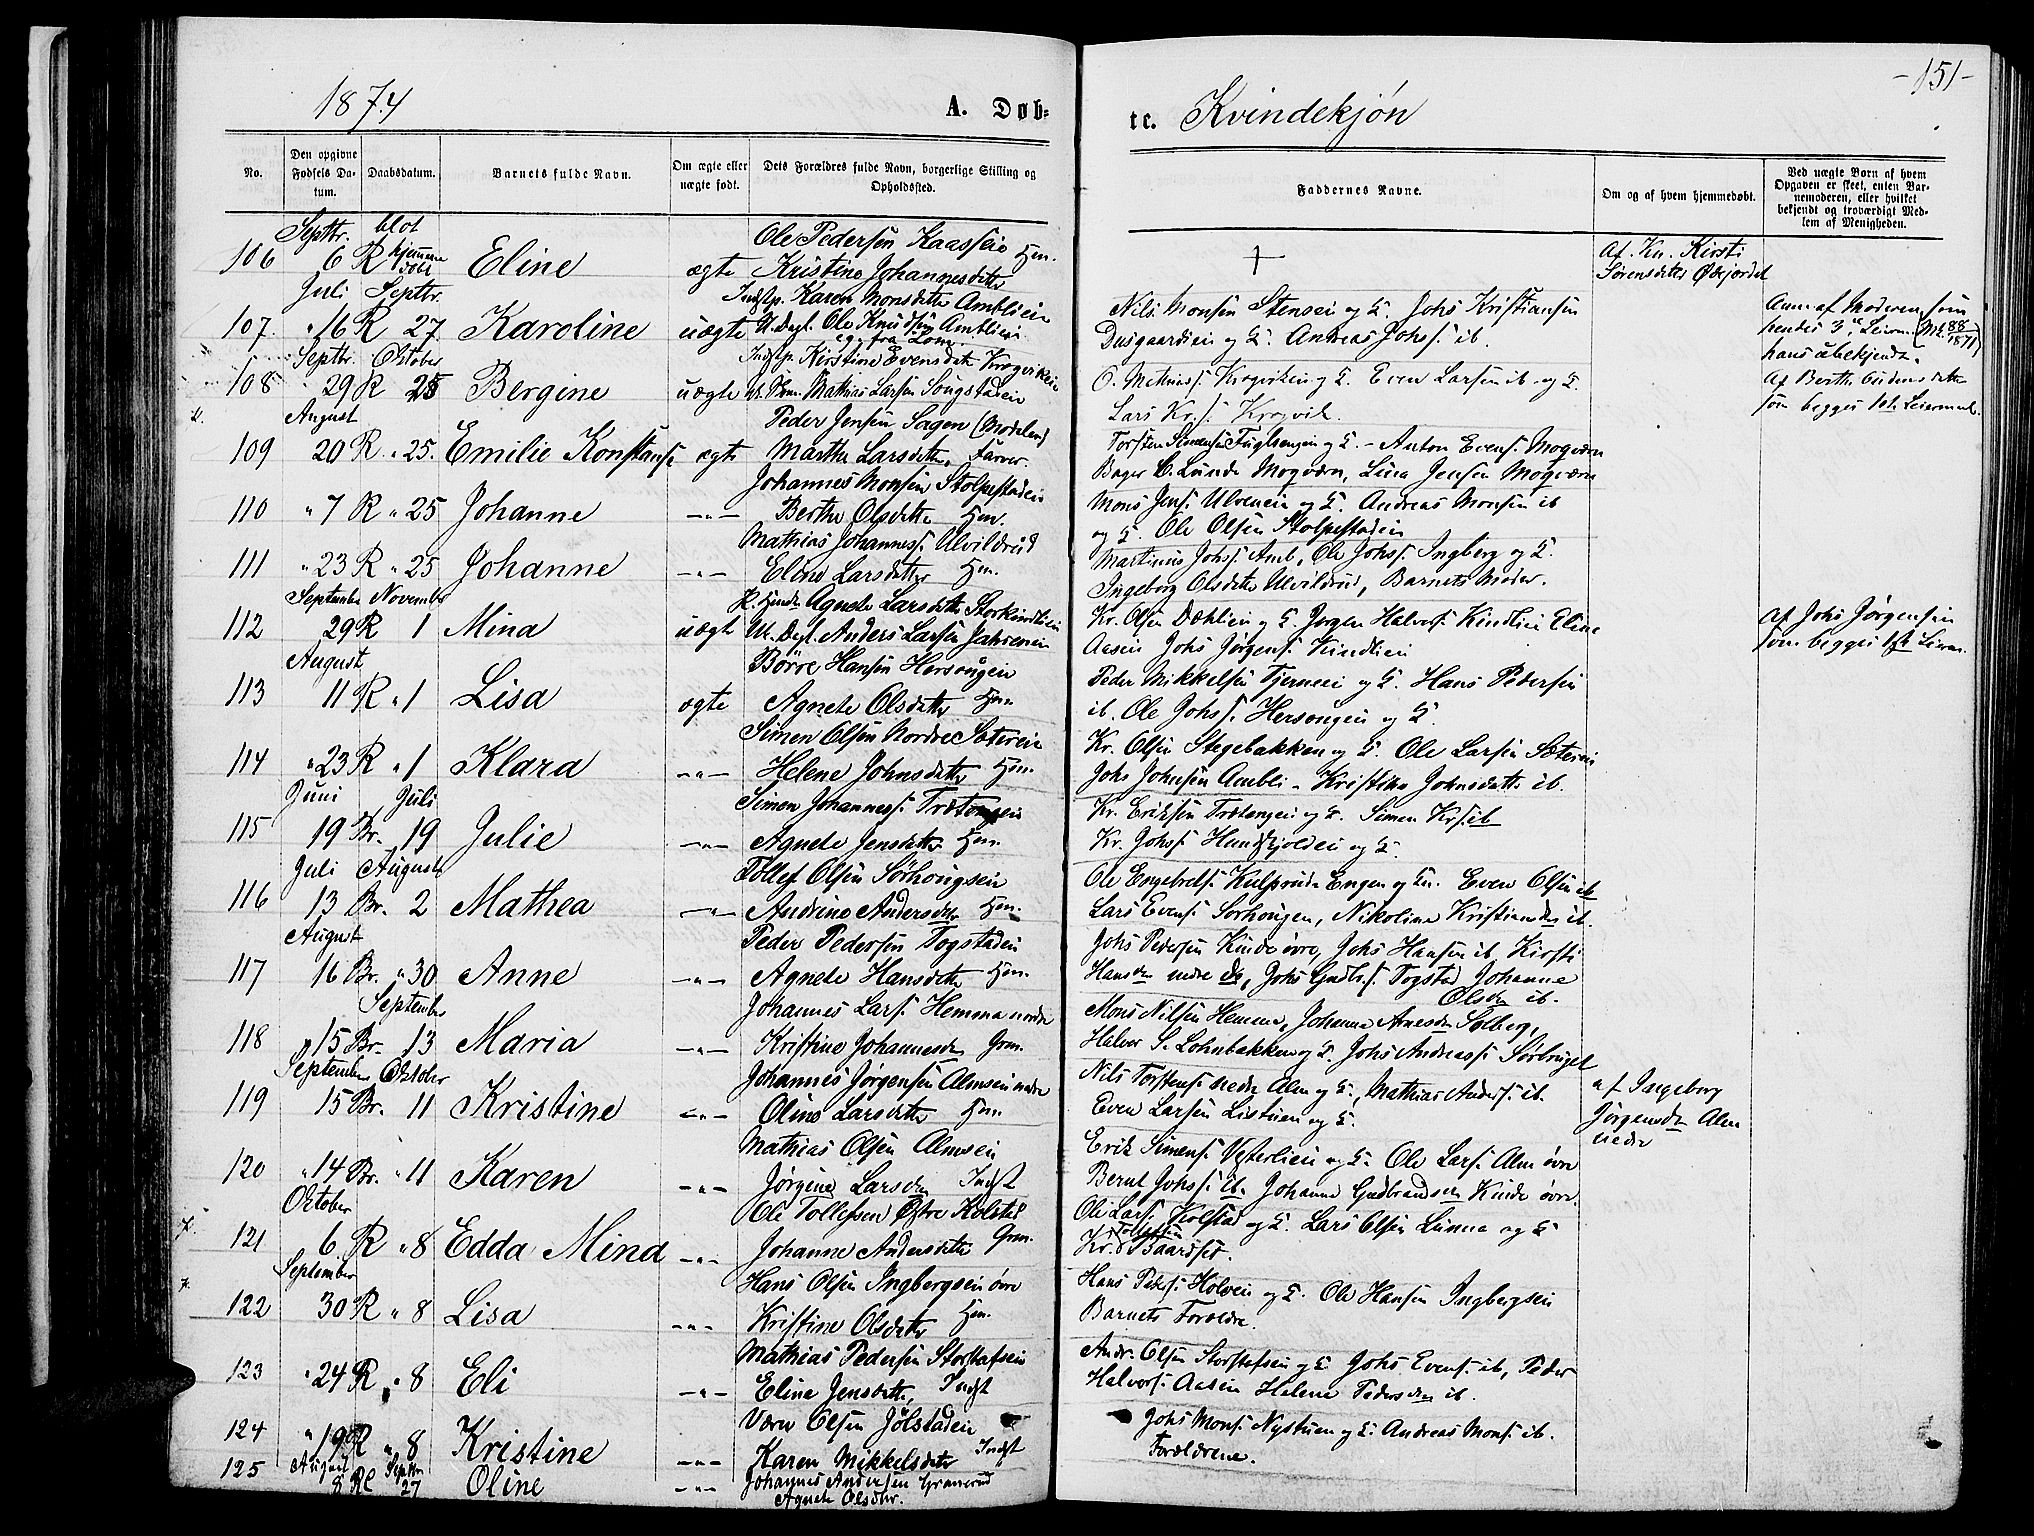 1874
A. Døb=
te. Kvindekjøn
-151-
No.
Den opgivne Fødsels Da-tum.
Daabsdatum.
Barnets fulde Navn.
Om ægte eller uægte født.
Dets Forældres fulde Navn, borgerlige Stilling og Opholdssted.
Faddernes Navne.
Om og af hvem hjemmedøbt.
Ved uægte Børn af hvem
Opgaven er skeet, enten Bar-
nemoderen, eller hvilket
bekjendt og troværdigt Med-
lem af Menigheden.
Septbr. blot
106 6 R hjemme døbt Eline ægte Ole Pedersen Kaasseie Hm.
Kristine Johannesdatter
+
Af Kn. Kirsti
Sørensdatter
Juli Septbr.
107. " 16 R 27. Karoline uægte Indstp. Karen Monsdatter Amblien
U. Ole Knudsen Amblien
Nils Monsen Stensei og H. Johs Kristiansen
og H. Andreas Johs. ib.
Anm. af Moderen som
hendes 3die Leierm. (Mk 88/1871)
hans ubekjendt.
Septbr. Oktober
108 29 R 25 Bergine uægte Indstp. Kirstine Evensdatter Krogvikeie
Mathias Larsen Songstadeie
O. Mathias. Krogvikeie og H. Even Larsen ib og H.
Lars Kr. Krogvik
Af Berthe
som begges 1ste Leiermaal.
August
109 20 R " 25. Emilie Konstanse ægte Peder Jensen Sagen (Modelen)
Marthe Larsdatter Farver.
Torsten Simensen og H. - Anton Evens. Mogværn
Bager C. Lunde Mogværn, Lina Jensen Mogværn
110 " 7 R " 25 Johanne -"- Johannes Monsen Stolpestadeie
Berthe Olsdatter Hm.
Mons Jens. Ulveneie og H. Andreas Monsen ib
og H. Ole Olsen Stolpestadeie
111 " 23 R " 25 Johanne -"- Mathias Johannes. Ulvildrud
Eline Larsdatter Hm.
Martinius Johs. Amb, Ole Johs. Ingberg og H.
Ingeborg Olsdatter Ulvildrud, Barnets Moder.
September November
112 29 R 1 Mina uægte Agnete Larsdatter Storkindlien
U. Anders Larsen
Kr. Olsen Dæhlien og H. Jørgen Halvors. Kindlien Eline
Aasen Johs Jørgens. Kindlien
af Johs Jørgensen
som begges 1ste Leierm.
August
113 11 R " 1 Lisa ægte Børre Hansen Hersougen
Agnete Olsdatter Hm
Peder Mikkelsen Tjerneie og H. Hans Pedersen
ib. Ole Johs. Hersougen og H.
114 " 23 R " 1 Klara -"- Simen Olsen Nordre Sætereie
Helene Johnsdatter Hm.
Kr. Olsen Stegebakken og H. Ole Larsen Sætereie
Johs Johnsen Ambli - Kristine Johnsdatter ib.
Juni Juli
115 19 Br. 19 Julie -"- Simen Johannes. Trøtengeie
Agnete Jensdatter Hm.
Kr. Eriksen Trøtengeie og H. Simen Krs. ib
Kr. Johs. Hundskjoldeie og H.
Juli August
116 13 Br. 2 Mathea -"- Tollef Olsen Sørhougseie
Andrine Andersdtr Hm.
Ole Engebrets. Kulsprud Engen og H. Even Olsen ib
Lars Evens. Sørhougen, Nikoline Kristiansdtr ib.
August
117 16 Br. " 30 Anne -"- Peder Pedersen Togstadeie
Agnete Hansdatter Hm.
Johs Pedersen Kinde øvre, Johs Hansen ib, Kirsti
Hansdtr nedre do, Johs Gudbr. Togstad Johanne
Olsdtr ib.
September
118 " 15 Br. 13 Maria -"- Johannes Lars. Hemma nordre
Kristine Johannesdtr Grm.
Mons Nilsen Hemma, Johanne Arnesdtr Solberg,
Halvor S. Lohnbakken og H. Johs Andreas. Sørbruget
September Oktober
119 15 Br. 11 Kristine -"- Johannes Jørgensen Almseie nedre
Oline Larsdatter Hm
Nils Torstens. nedre Alm og H., Mathias Anders. ib.
Even Larsen Listuen og H.
af Ingeborg
Jørgensdtr Alm
nedre
120 " 14 Br. " 11 Karen -"- Mathias Olsen Almseie
Jørgine Larsdtr Indst
Erik Simens. Vesterlien og H. Ole Lars. Alm øvre
Bernt Johs. ib. Johanne Gudbrandsdtr Kinde øvre.
Oktober
121 6. R " 8 Edda Mina -"- Ole Tollefsen Østre Kolstad
Johanne Andersdatter Grm.
Ole Lars. Kolstad og H. Lars Olsen Lunna og H
Kr. Tollefsen Baardset.
September
122 30 R " 8 Lisa -"- Hans Olsen Ingbergseie øvre
Kristine Olsdatter Hm.
Hans Peders. Holveie og H. Ole Hansen Ingbergseie
Barnets Forældre.
123 " 24 R " 8 Eli -"- Mathias Pedersen Storstafseie
Eline Jensdatter, Indst
Andr. Olsen Storstafseie og H. Johs Evens. ib, Peder
Halvors. Aasen Helene Pedersdtr ib.
124 " 19 R " 8 Kristine -"- Olsen Jølstadeie
Karen Mikkelsdatter Indst
Johs Mons. Nystuen og H. Andreas Mons. ib.
Forældrene.
August Septbr
125 8 R 27 Oline -"- Johannes Andersen Granerud
Agnete Olsdtr.